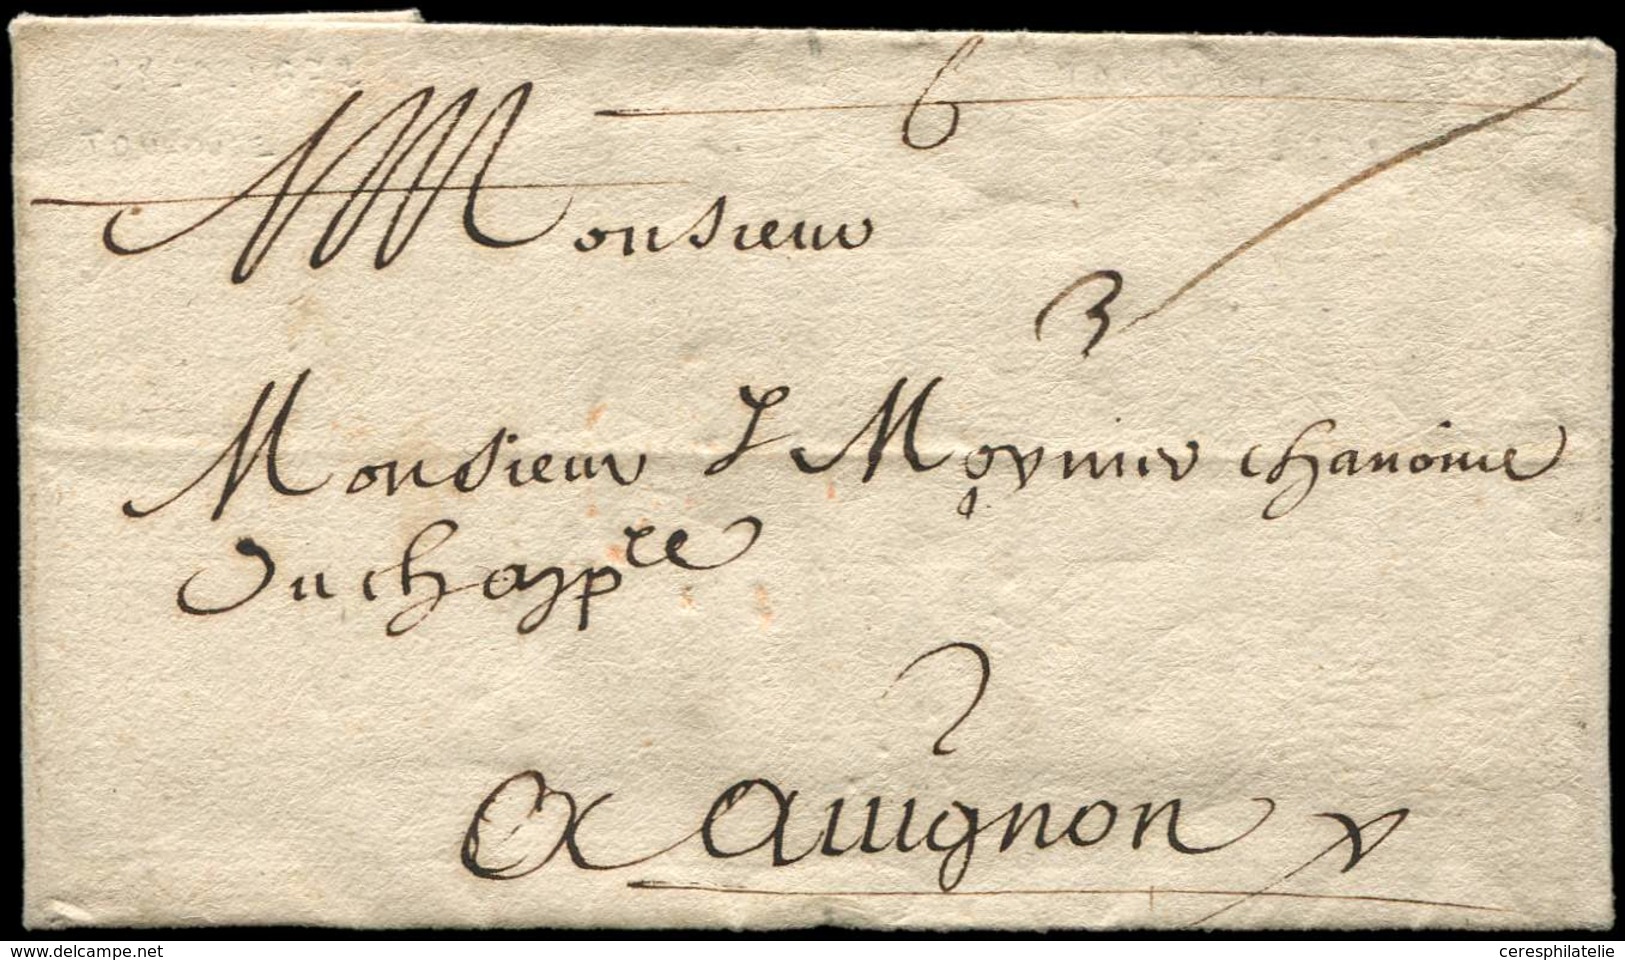 6
Monsieur
3
Monsieur Moynier chanoine
Du chapp^re
A Avignon
www.delcampe.net
ceresphilatelie